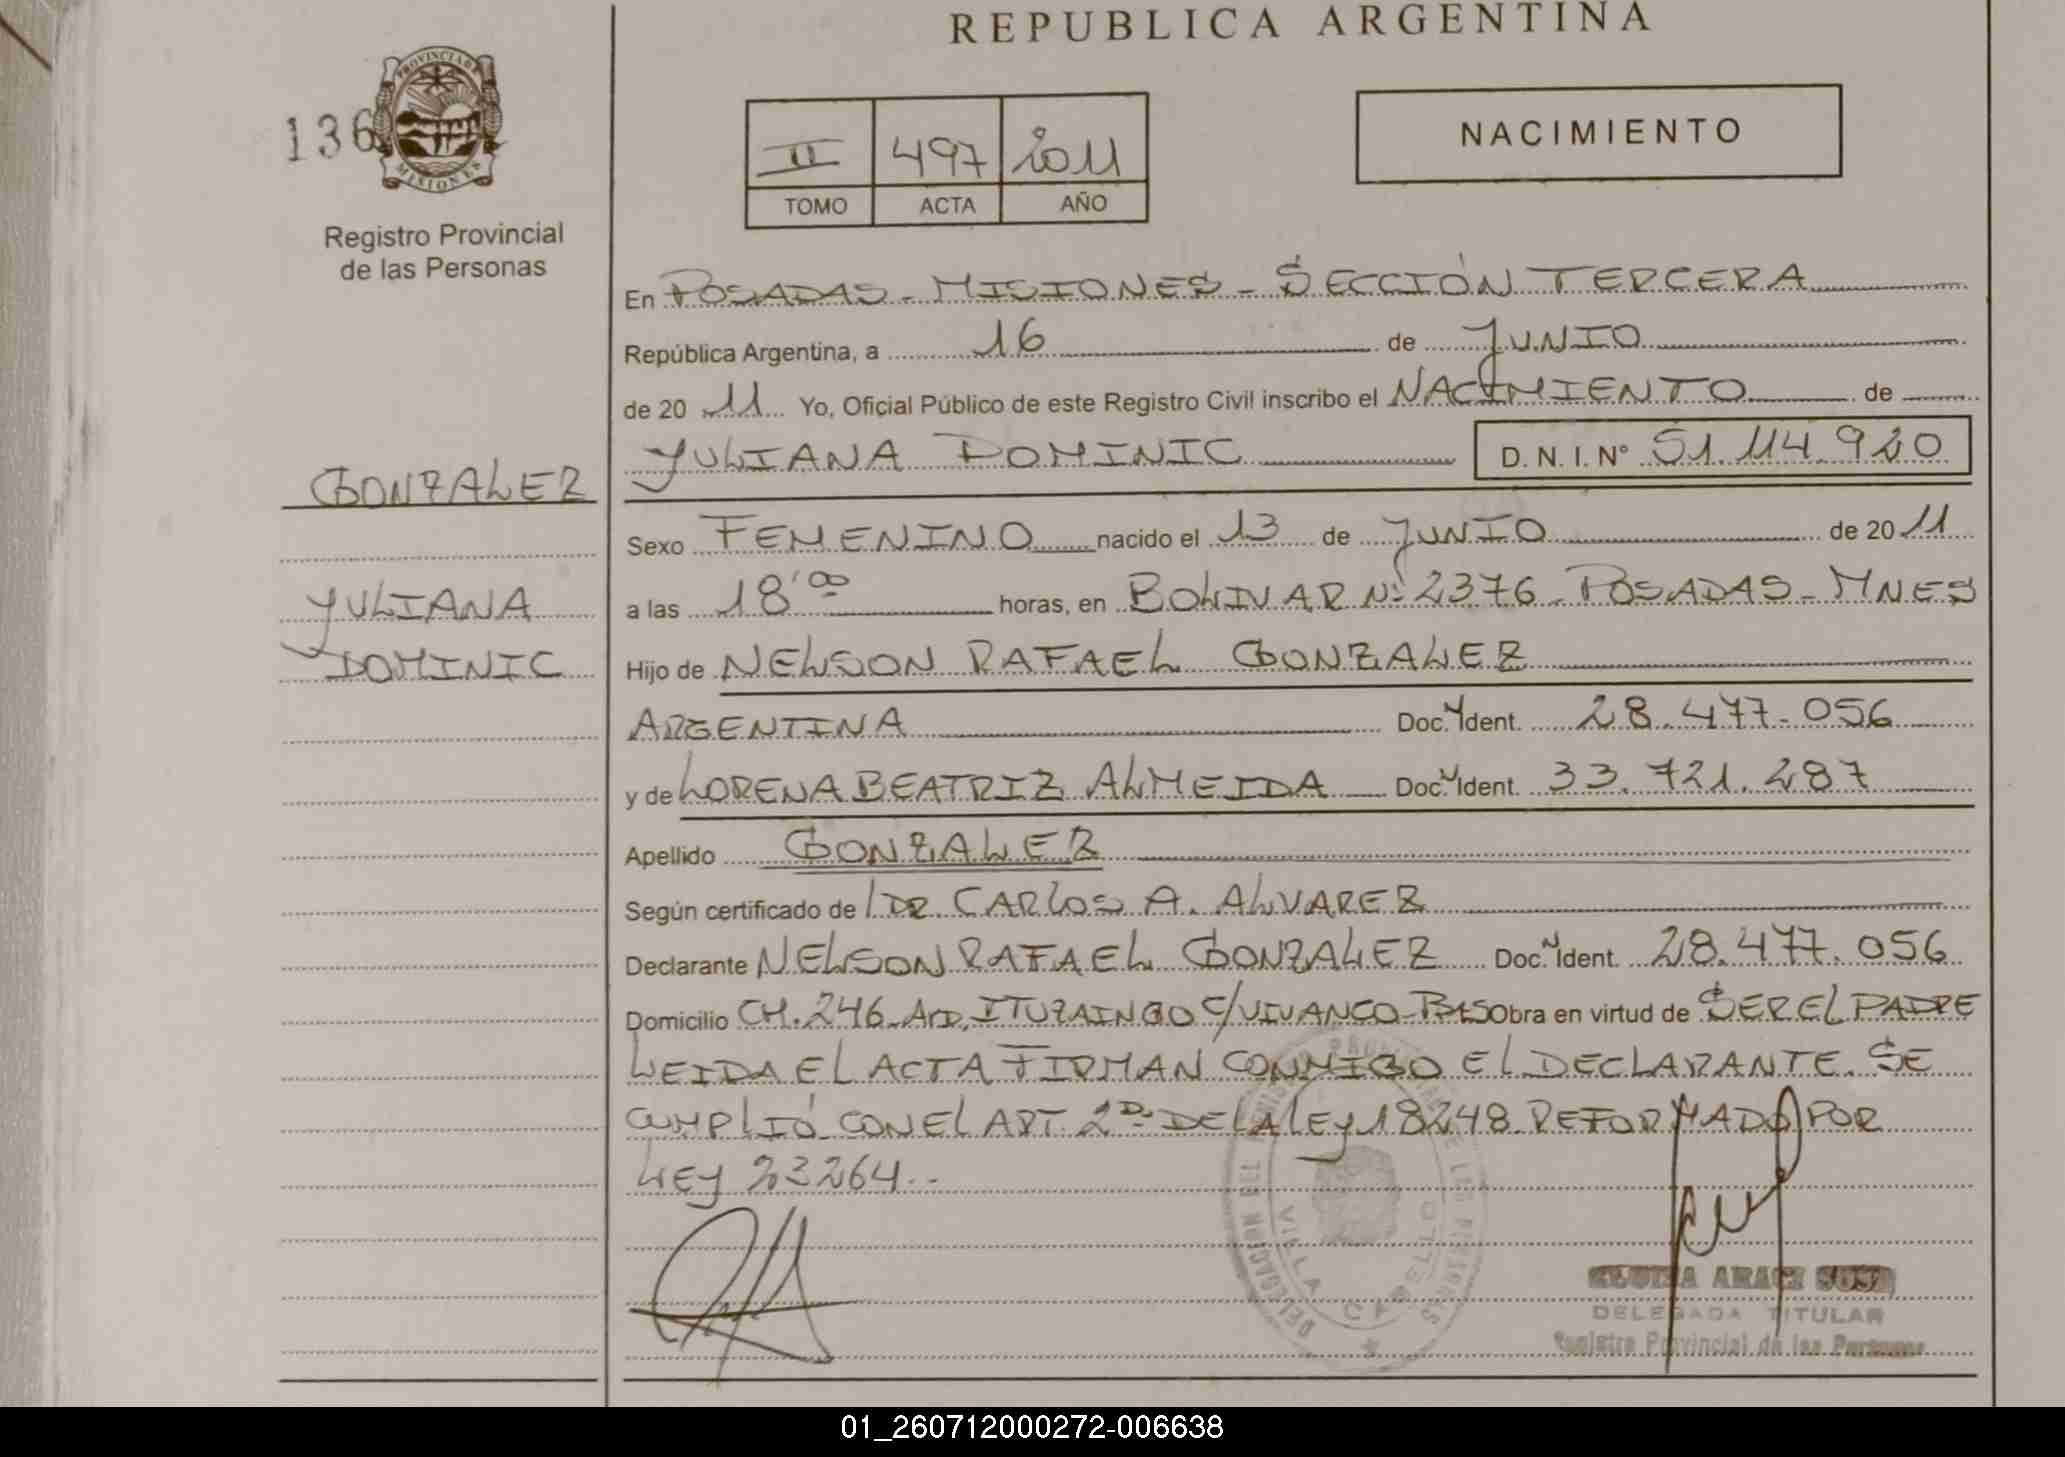 REPUBLICA ARGENTINA
136
PROVINCIA DE
MISIONES
Registro Provincial
de las Personas
II 497 2011
TOMO ACTA AÑO
NACIMIENTO
En POSADAS - MISIONES - SECCIÓN TERCERA
República Argentina, a 16 de JUNIO
de 20 11 Yo, Oficial Público de este Registro Civil inscribo el NACIMIENTO de
YULIANA DOMINIC D. N. I. N° 51.114.920
GONZALEZ
YULIANA
DOMINIC
Sexo FEMENINO nacido el 13 de JUNIO de 20 11
a las 18'00 horas, en BOLIVAR Nº 2376 - POSADAS - MNES
Hijo de NELSON RAFAEL GONZALEZ
ARGENTINA Doc. Ident. 28.477.056
y de LORENA BEATRIZ ALMEIDA Doc. Ident. 33.721.287
Apellido GONZALEZ
Según certificado de DR CARLOS A. ALVAREZ
Declarante NELSON RAFAEL GONZALEZ Doc. Ident. 28.477.056
Domicilio CH. 246 ITUZAINGO C/VIVANCO Obra en virtud de SER EL PADRE
LEIDA EL ACTA FIRMAN CONMIGO EL DECLARANTE. SE
CUMPLIÓ CON EL ART. 2º DE LA LEY 18248 REFORMADO POR
LEY 23264..
DELEGACION DEL REGISTRO PROVINCIAL DE LAS PERSONAS
VILLA CABELLO
DELEGADA TITULAR
Registro Provincial de las Personas
01_260712000272-006638